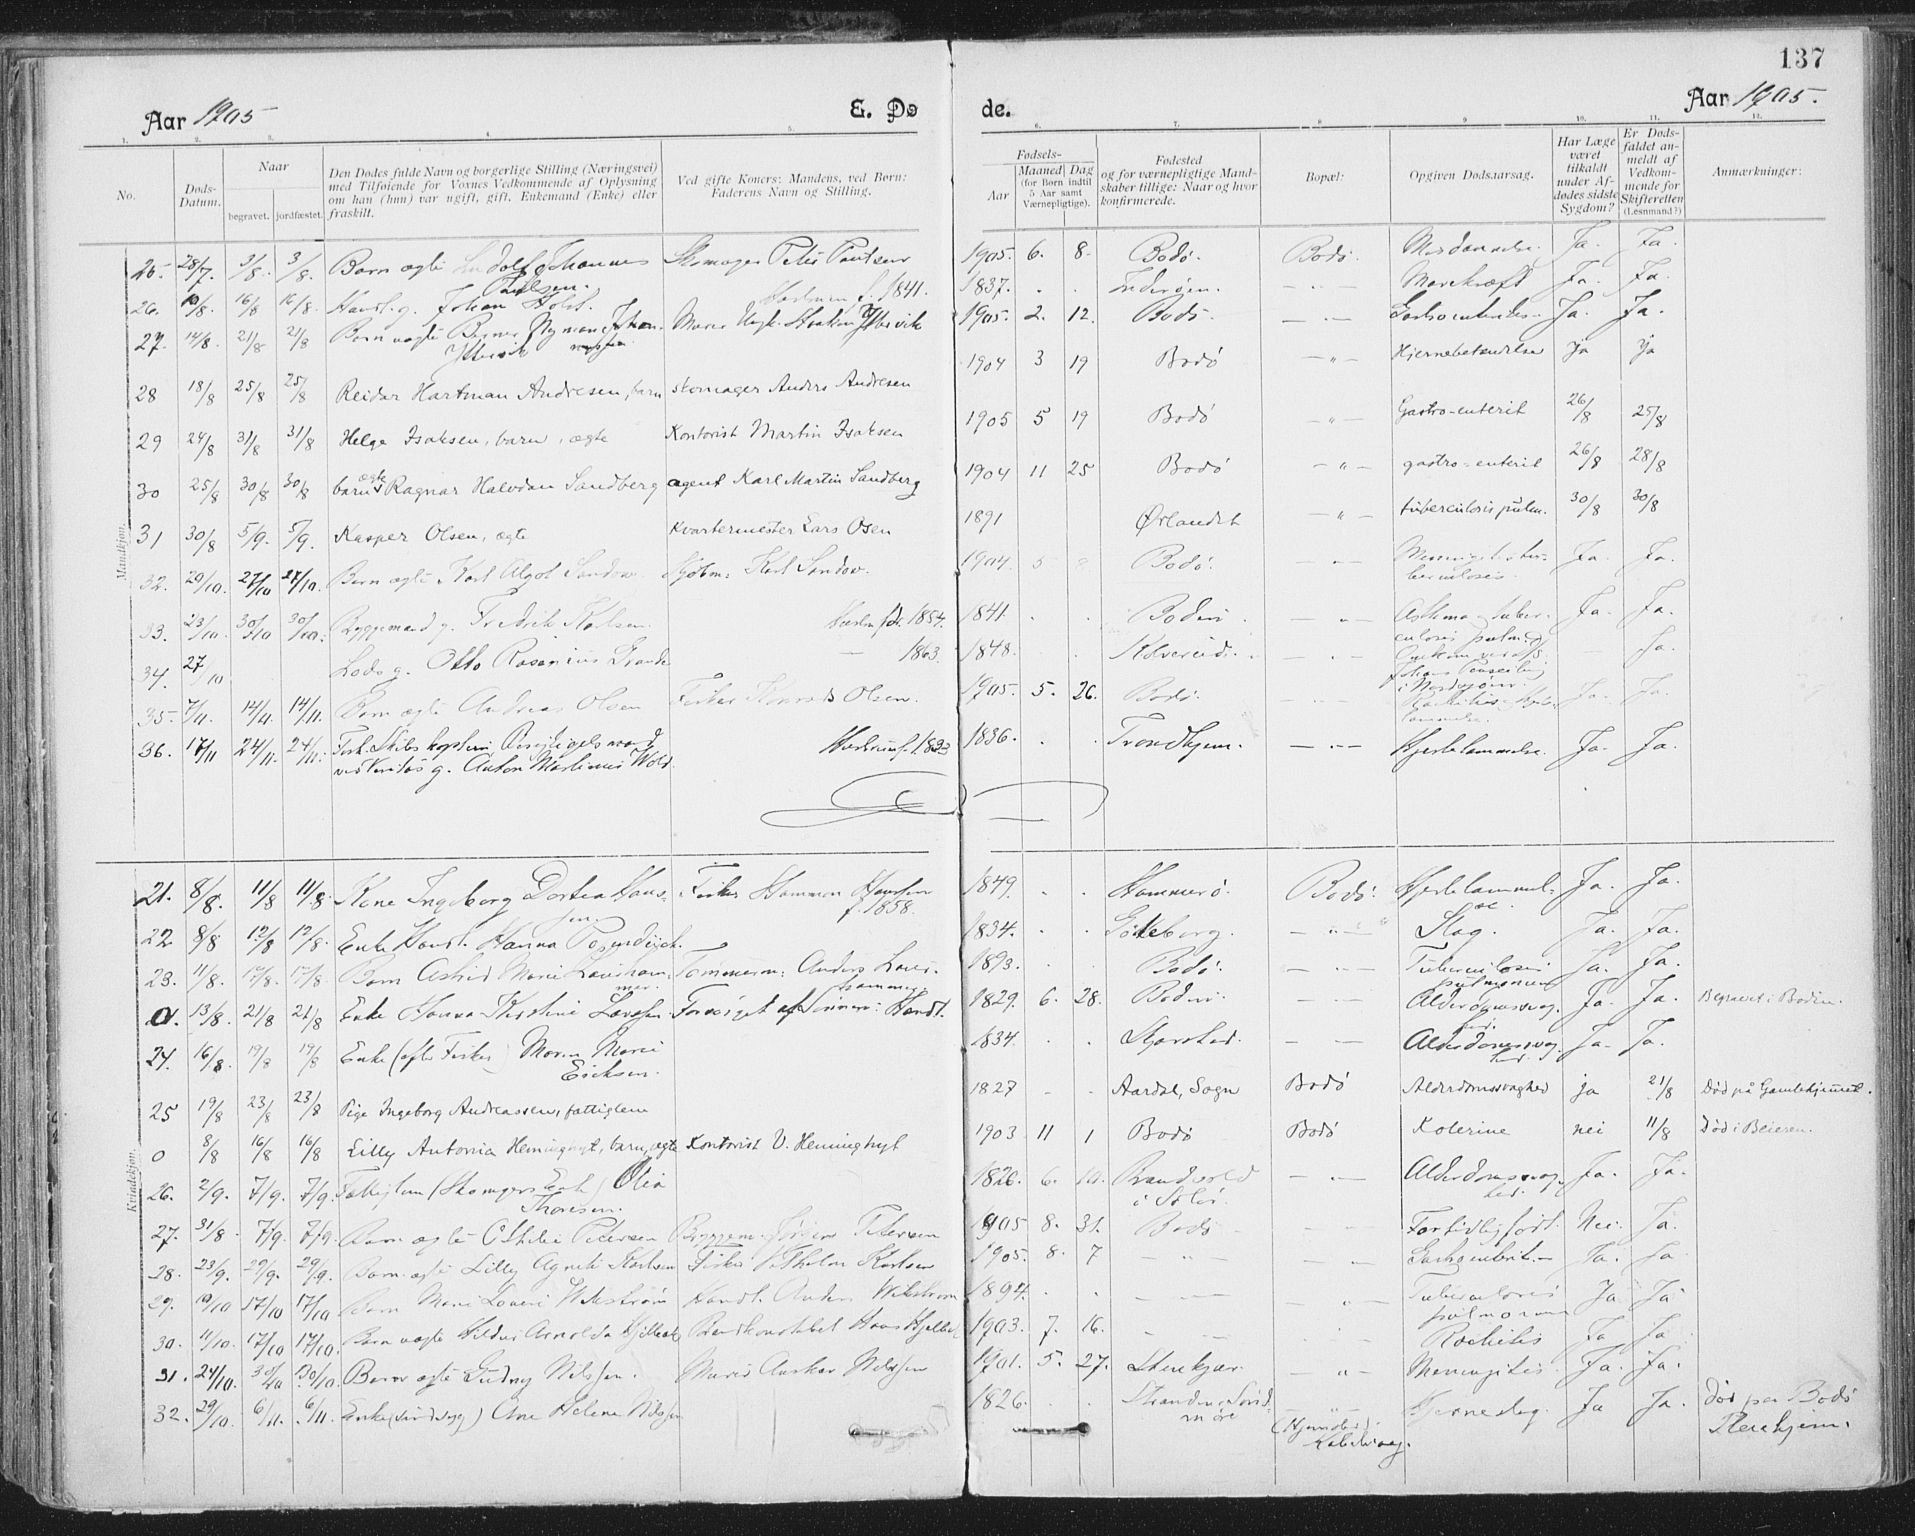 137
Aar 1905 E. Dø de. Aar 1905.
1. 2. 3. 4. 5. 6. 7. 8 9 10. 11. 12.
No. Døds-Datum. Naar begravet. jordfæstet. Den Dødes fulde Navn og borgerlige Stilling (Næringsvei) med Tilføiende for Voxnes Vedkommende af Oplysning om han (hun) var ugift, gift, Enkemand (Enke) eller fraskilt. Ved gifte Koners: Mandens, ved Børn: Faderens Navn og Stilling. Fødsels- Aar Maaned Dag (for Børn indtil 5 Aar samt Værnepligtige). Fødested og for værnepligtige Mandskaber tillige: Naar og hvor konfirmerede. Bopæl: Opgiven Dødsaarsag. Har Læge været tilkaldt under Afdødes sidste Sygdom? Er Dødsfaldet anmeldt af Vedkommende for Skifteretten (Lesnmand?) Anmærkninger:
Mandkjøn.
25. 28/7. 3/8. 3/8. Barn ægte Ludolf Johannes Paulsen. Skomager Peter Paulsen 1905. 6. 8. Bodø. Bodø. Misdannelse. Ja. Ja.
26. 10/8. 16/8 16/8. Handl. g. Johan Holst. Hustrun f. 1841. 1837. . . Inderøen. — " — Marekræft Ja. Ja.
27. 14/8. 21/8 21/8 Barn uægte Berner Nyman Johan. Yttervik Murer Ungk. Haakon Yttervik 1905. 2. 12. Bodø. — " — Gastroenterit Ja. Ja.
28 18/8 25/8 25/8 Reidar Hartman Andresen, barn skomager Anders Andresen 1904 3 19 Bodø — " — Hjernebetændelse Ja ja
29 24/8 31/8 31/8 Helge Isaksen, barn, ægte Kontorist Martin Isaksen 1905 5 19 Bodø — " — Gastro-enterit 26/8 25/8
30 25/8 30/8 30/8 barn ægte Ragnar Halvdan Sandberg agent Karl Martin Sandberg 1904 11 25 Bodø — " — gastro-enterit 26/8 28/8
31 30/8 5/9. 5/9. Kasper Olsen, ægte Kvartermester Lars Osen 1891 Ørlandet — " — tuberculosis pulm. 30/8 30/8
32. 20/10. 27/10 27/10. Barn ægte Karl Algot Sandow. Kjøbm: Karl Sandow. 1904. 5 8 Bodø. — " — Meningitis tuberculosis. Ja. Ja.
33. 23/10. 30/10 30/10. Byggemand g. Fredrik Karlsen. Hustru fdt. 1854. 1841. . . Bodin. — " — Asthma tuberculosis pulm. Ja. Ja.
34. 27/10 Lods g. Otto Rosenius Grande — 1863. 1848. . . Kolvereid. — " — Omkom ved i Nordsjøen Ja.
35. 7/11. 14/11. 14/11. Barn ægte Andreas Olsen Fisker Konrad Olsen. 1905. 5. 26. Bodø. — " — Rachitis Hjertelammelse. Ja. Ja.
36. 17/11 24/11. 24/11. Forh. Skibskaptein, Besigtigelsmand ved Veritas g. Anton Martinus Wold. Hustrun f. 1833 1836. . . Trondhjem. — " — Hjertelammelse. Ja. Ja.
Kvindekjøn.
21. 8/8. 11/8 11/8. Kone Ingeborg Dortea Hansen Fisker Hammon Hansen f. 1858. 1849. . . Hammerø. Bodø. Hjertelammelse. Ja. Ja.
22 8/8 12/8 12/8. Enke Handl. Hanna 1834. . . Göteborg. — " — Slag. Ja. Ja.
23. 11/8. 17/8. 17/8. Barn Astrid Marie Laurhammer. Tømmerm: Anders Laurhammer 1893. . . Bodø. — " — Tuberculosis pulmonum Ja. Ja.
0. 13/8. 21/8 21/8 Enke Hanna Kirstine Larsen. Forsørget af Sønnen: Handl. 1829. 6. 28. Bodin. — — Alderdomssvaghed. Ja. Ja. Begravet i Bodin.
24. 16/8. 19/8 19/8 Enke (efter Fisker) Maren Marie Eriksen. 1834. . . Skjærstad. — — Alderdomssvaghed. Ja. Ja.
25 19/8 23/8 23/8 Pige Ingeborg Andreassen, fattiglem 1827 - . Aardal, Sogn Bodø Alderdomssvaghed ja 21/8 Død på Gamlehjemmet.
0 8/8 16/8 16/8 Lilly Antonia Heminghyt, barn, ægte Kontorist V. Heminghyt 1903 11 1 Bodø Bodø Kolerine nei 11/8 Død i Beieren.
26. 2/9. 7/9. 7/9. Fattiglem (Skomagers Enke) Olia Thoresen. 1826. 6. 10. Brandvold i Solør. — " — Alderdomssvaghed. Ja. Ja.
27. 31/8 7/9. 7/9. Barn ægte Othilie Petersen Byggem. Jørgen Petersen 1905 8. 31. Bodø — — For tidlig født. Nei. Ja.
28. 23/9. 29/9. 29/9. Barn ægte Lilly Agnete Karlsen Fisker Vilhelm Karlsen 1905. 8. 7 — " — — — Gastroenterit. Ja. Ja
29. 10/10 17/10 17/10 Barn Marie Lovise Wikstrøm Handl. Anders Wikstrøm 1894. . . — " — — " — Tuberculosis pulmonum Ja Ja
30. 11/10. 17/10 17/10. Barn uægte Hildur Arnolda Hjelbak Hans Hjelbak 1903. 7. 16. — — Rachitis Ja Ja
31. 24/10. 30/10 30/10. Barn ægte Gudny Nilssen. Murer Anskar Nilssen 1901. 5. 27. Stenkjær. — " — Meningitis. Ja. Ja.
32. 29/10. 6/11. 6/11. Enke (sindssyg) Ane Helene Nilssen 1826. . . Stranden, Søndmøre — " — (Hjemsted: Kabelvaag. Hjerneslag. Ja Ja. Død paa Bodø Pleiehjem.